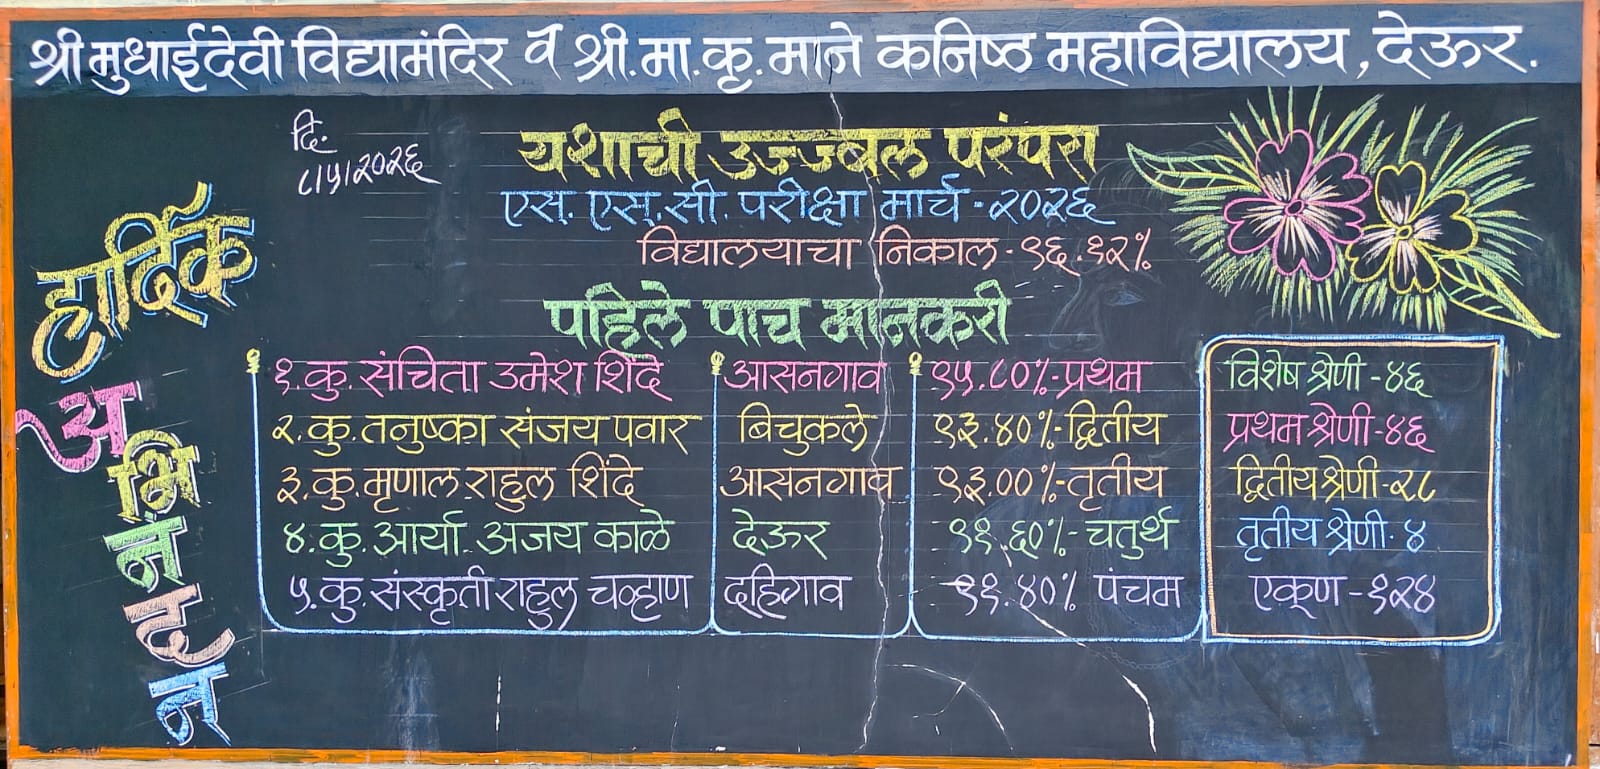 श्री मुधाईदेवी विद्यामंदिर व श्री. मा. कृ. माने कनिष्ठ महाविद्यालय, देऊर.
दि.
८।५।२०२६
यशाची उज्ज्वल परंपरा
एस. एस. सी. परीक्षा मार्च - २०२६
विद्यालयाचा निकाल - ९६.१२%
हार्दिक
अभिनंदन
पहिले पाच मानकरी
१. कु. संचिता उमेश शिंदे आसनगाव ९५.८०% - प्रथम
२. कु. तनुष्का संजय पवार बिचुकले ९३.४०% - द्वितीय
३. कु. मृणाल राहुल शिंदे आसनगाव ९३.००% - तृतीय
४. कु. आर्या अजय काळे देऊर ९१.६०% - चतुर्थ
५. कु. संस्कृती राहुल चव्हाण दहिगाव ९१.४०% पंचम
विशेष श्रेणी - ४६
प्रथम श्रेणी - ४६
द्वितीय श्रेणी - २८
तृतीय श्रेणी - ४
एकूण - १२४